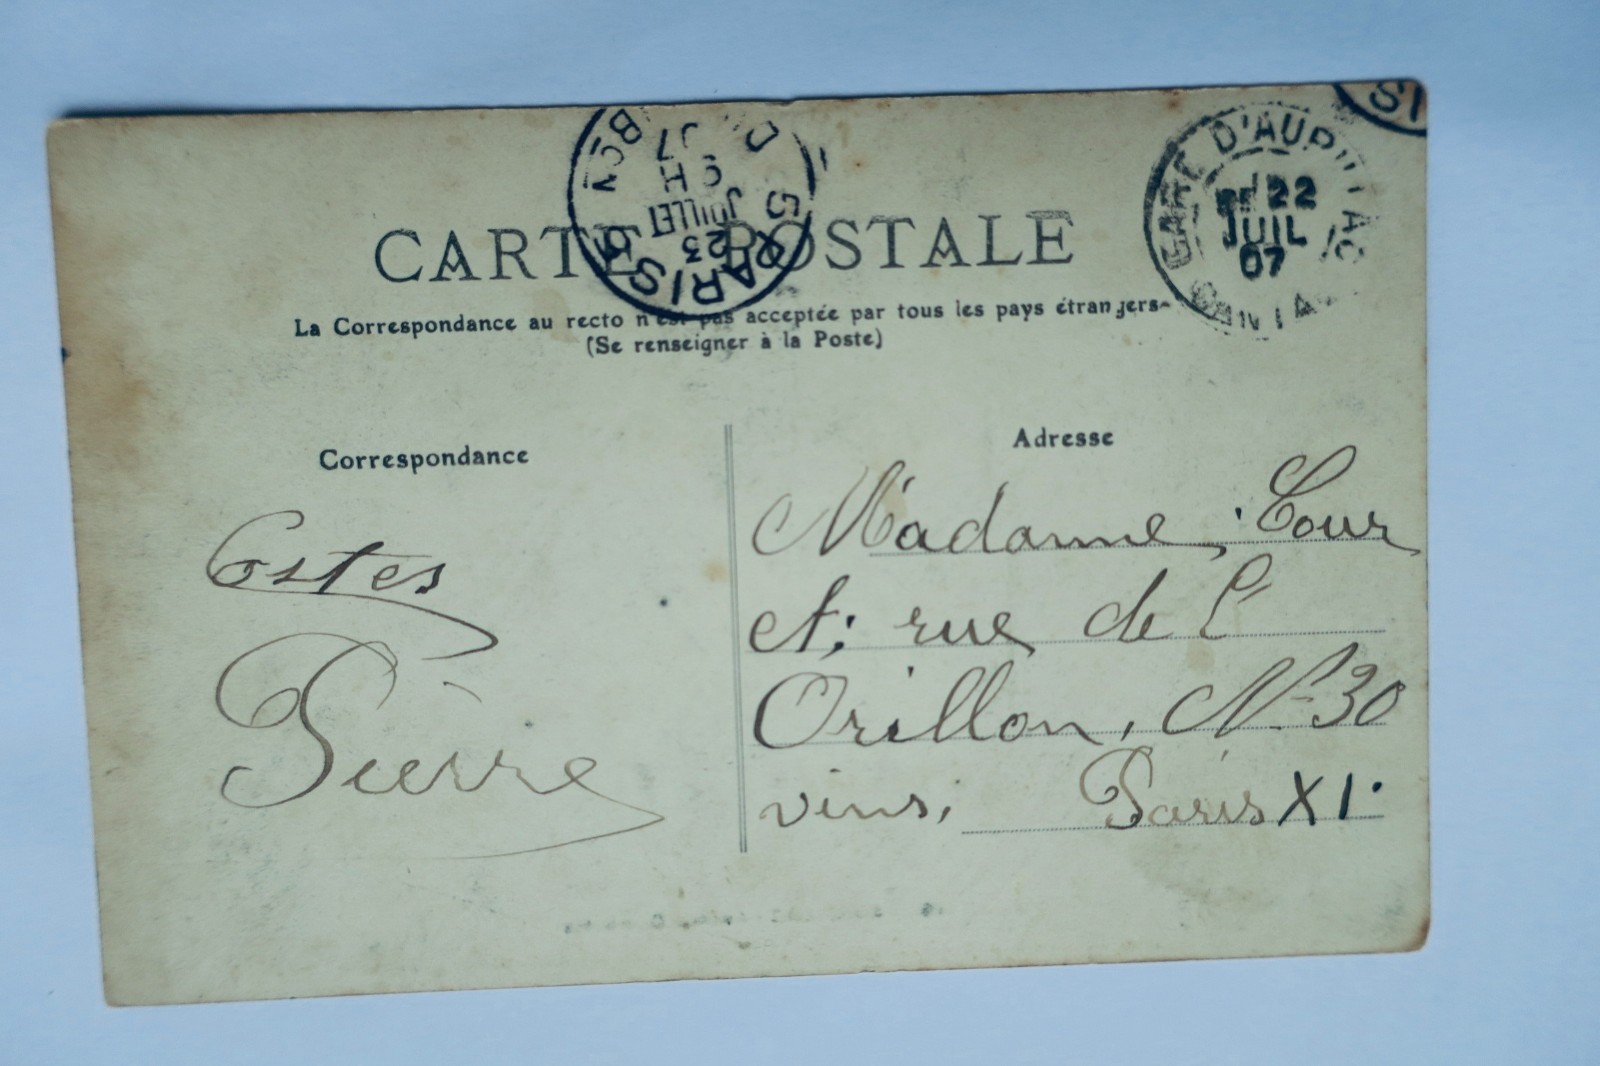 CARTE POSTALE
La Correspondance au recto n'est pas acceptée par tous les pays étrangers
(Se renseigner à la Poste)
PARIS
5
23
JUILLET
07
GARE D'AURILLAC
22
JUIL
07
CANTAL
IS
Correspondance
Costes
Pierre
Adresse
Madame Cour
A; rue de l'
Orillon, N- 30
vins, Paris XI.